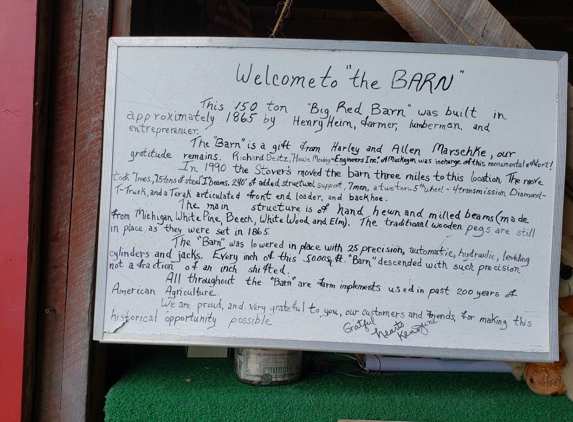 Welcome to "the BARN"
This 150 ton "Big Red Barn" was built in
approximately 1865 by Henry Heirn, farmer, lumberman, and
entreprenaner.
The "Barn" is a gift from Harley and Allen Marschke, our
gratitude remains. Richard Deitz, House Moving Engineers Inc. of Muskegon was incharge of this monumental effort!
In 1990 the Stover's moved the barn three miles to this location. The move
took 7mos, 15tons of steel I beams, 240' of added structual support, 7men, a two ton 5th wheel - 4 transmission Diamond-
T-Truck, and a Terak articulated front end loader, and backhoe.
The main structure is of hand hewn and milled beams (made
from Michigan, White Pine, Beech, White Wood and Elm). The traditional wooden pegs are still
in place as they were set in 1865.
The "Barn" was lowered in place with 25 precision, automatic, hydraulic, leveling
cylinders and jacks. Every inch of this 5000sq.ft. "Barn" descended with such precision
not a fraction of an inch shifted.
All throughout the "Barn" are farm implements used in past 200 years of
American Agriculture.
We are proud, and very grateful to you, our customers and friends, for making this
historical opportunity possible
Gratful
hearts